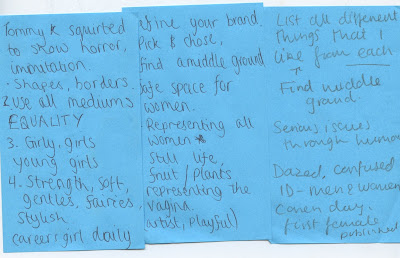 Tommy K squirted
to show horror,
immutation.
· Shapes, borders.
2 use all mediums
EQUALITY
3. Girly, girls
young girls
4. Strength, soft,
gentles, fairies,
stylish
career girl daily
define your brand
Pick & chose,
find a middle ground
safe space for
women.
Representing all
women
Still life,
fruit / plants
representing the
vagina.
artist, playful)
List all different
things that I
like from each
Find middle
ground.
Serious issues
through humour
Dazed, confused
ID - men & women
first female
published